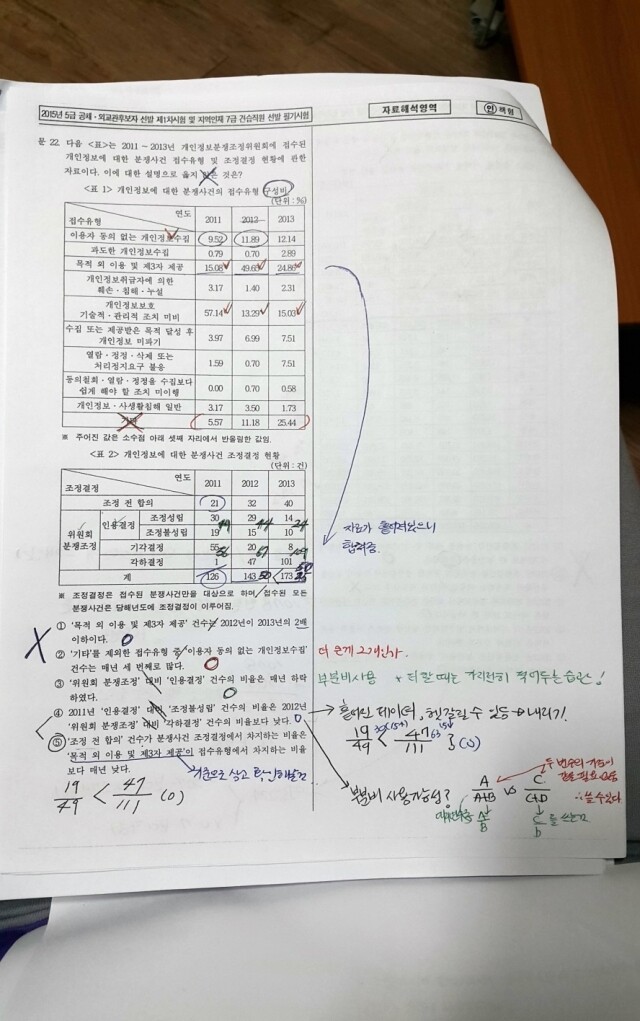 2015년 5급 공채·외교관후보자 선발 제1차시험 및 지역인재 7급 견습직원 선발 필기시험
자료해석영역
인 책형
문 22. 다음 <표>는 2011 ~ 2013년 개인정보분쟁조정위원회에 접수된
개인정보에 대한 분쟁사건 접수유형 및 조정결정 현황에 관한
자료이다. 이에 대한 설명으로 옳지 않은 것은?
<표 1> 개인정보에 대한 분쟁사건의 접수유형 구성비
(단위 : %)
연도
접수유형 2011 2012 2013
이용자 동의 없는 개인정보수집 9.52 11.89 12.14
과도한 개인정보수집 0.79 0.70 2.89
목적 외 이용 및 제3자 제공 15.08 49.65 24.86
개인정보취급자에 의한
훼손·침해·누설 3.17 1.40 2.31
개인정보보호
기술적·관리적 조치 미비 57.14 13.29 15.03
수집 또는 제공받은 목적 달성 후
개인정보 미파기 3.97 6.99 7.51
열람·정정·삭제 또는
처리정지요구 불응 1.59 0.70 7.51
동의철회·열람·정정을 수집보다
쉽게 해야 할 조치 미이행 0.00 0.70 0.58
개인정보·사생활침해 일반 3.17 3.50 1.73
기타 5.57 11.18 25.44
※ 주어진 값은 소수점 아래 셋째 자리에서 반올림한 값임.
<표 2> 개인정보에 대한 분쟁사건 조정결정 현황
(단위 : 건)
연도
조정결정 2011 2012 2013
조정 전 합의 21 32 40
위원회
분쟁조정
인용결정 조정성립 30 29 14
조정불성립 19 15 10
기각결정 55 20 8
각하결정 1 47 101
계 126 143 173
※ 조정결정은 접수된 분쟁사건만을 대상으로 하며, 접수된 모든
분쟁사건은 당해년도에 조정결정이 이루어짐.
① '목적 외 이용 및 제3자 제공' 건수는 2012년이 2013년의 2배
이하이다.
② '기타'를 제외한 접수유형 중 '이용자 동의 없는 개인정보수집'
건수는 매년 세 번째로 많다.
더 큰게 2개인가.
③ '위원회 분쟁조정' 대비 '인용결정' 건수의 비율은 매년 하락
하였다.
부분비사용
④ 2011년 '인용결정' 대비 '조정불성립' 건수의 비율은 2012년
'위원회 분쟁조정' 대비 '각하결정' 건수의 비율보다 낮다.
⑤ '조정 전 합의' 건수가 분쟁사건 조정결정에서 차지하는 비율은
'목적 외 이용 및 제3자 제공'이 접수유형에서 차지하는 비율
보다 매년 낮다.
19/49 < 47/111 (o)
19/49 < 47/111 (o)
부분비 사용가능성?
A/A+B vs C/C+D
A/B